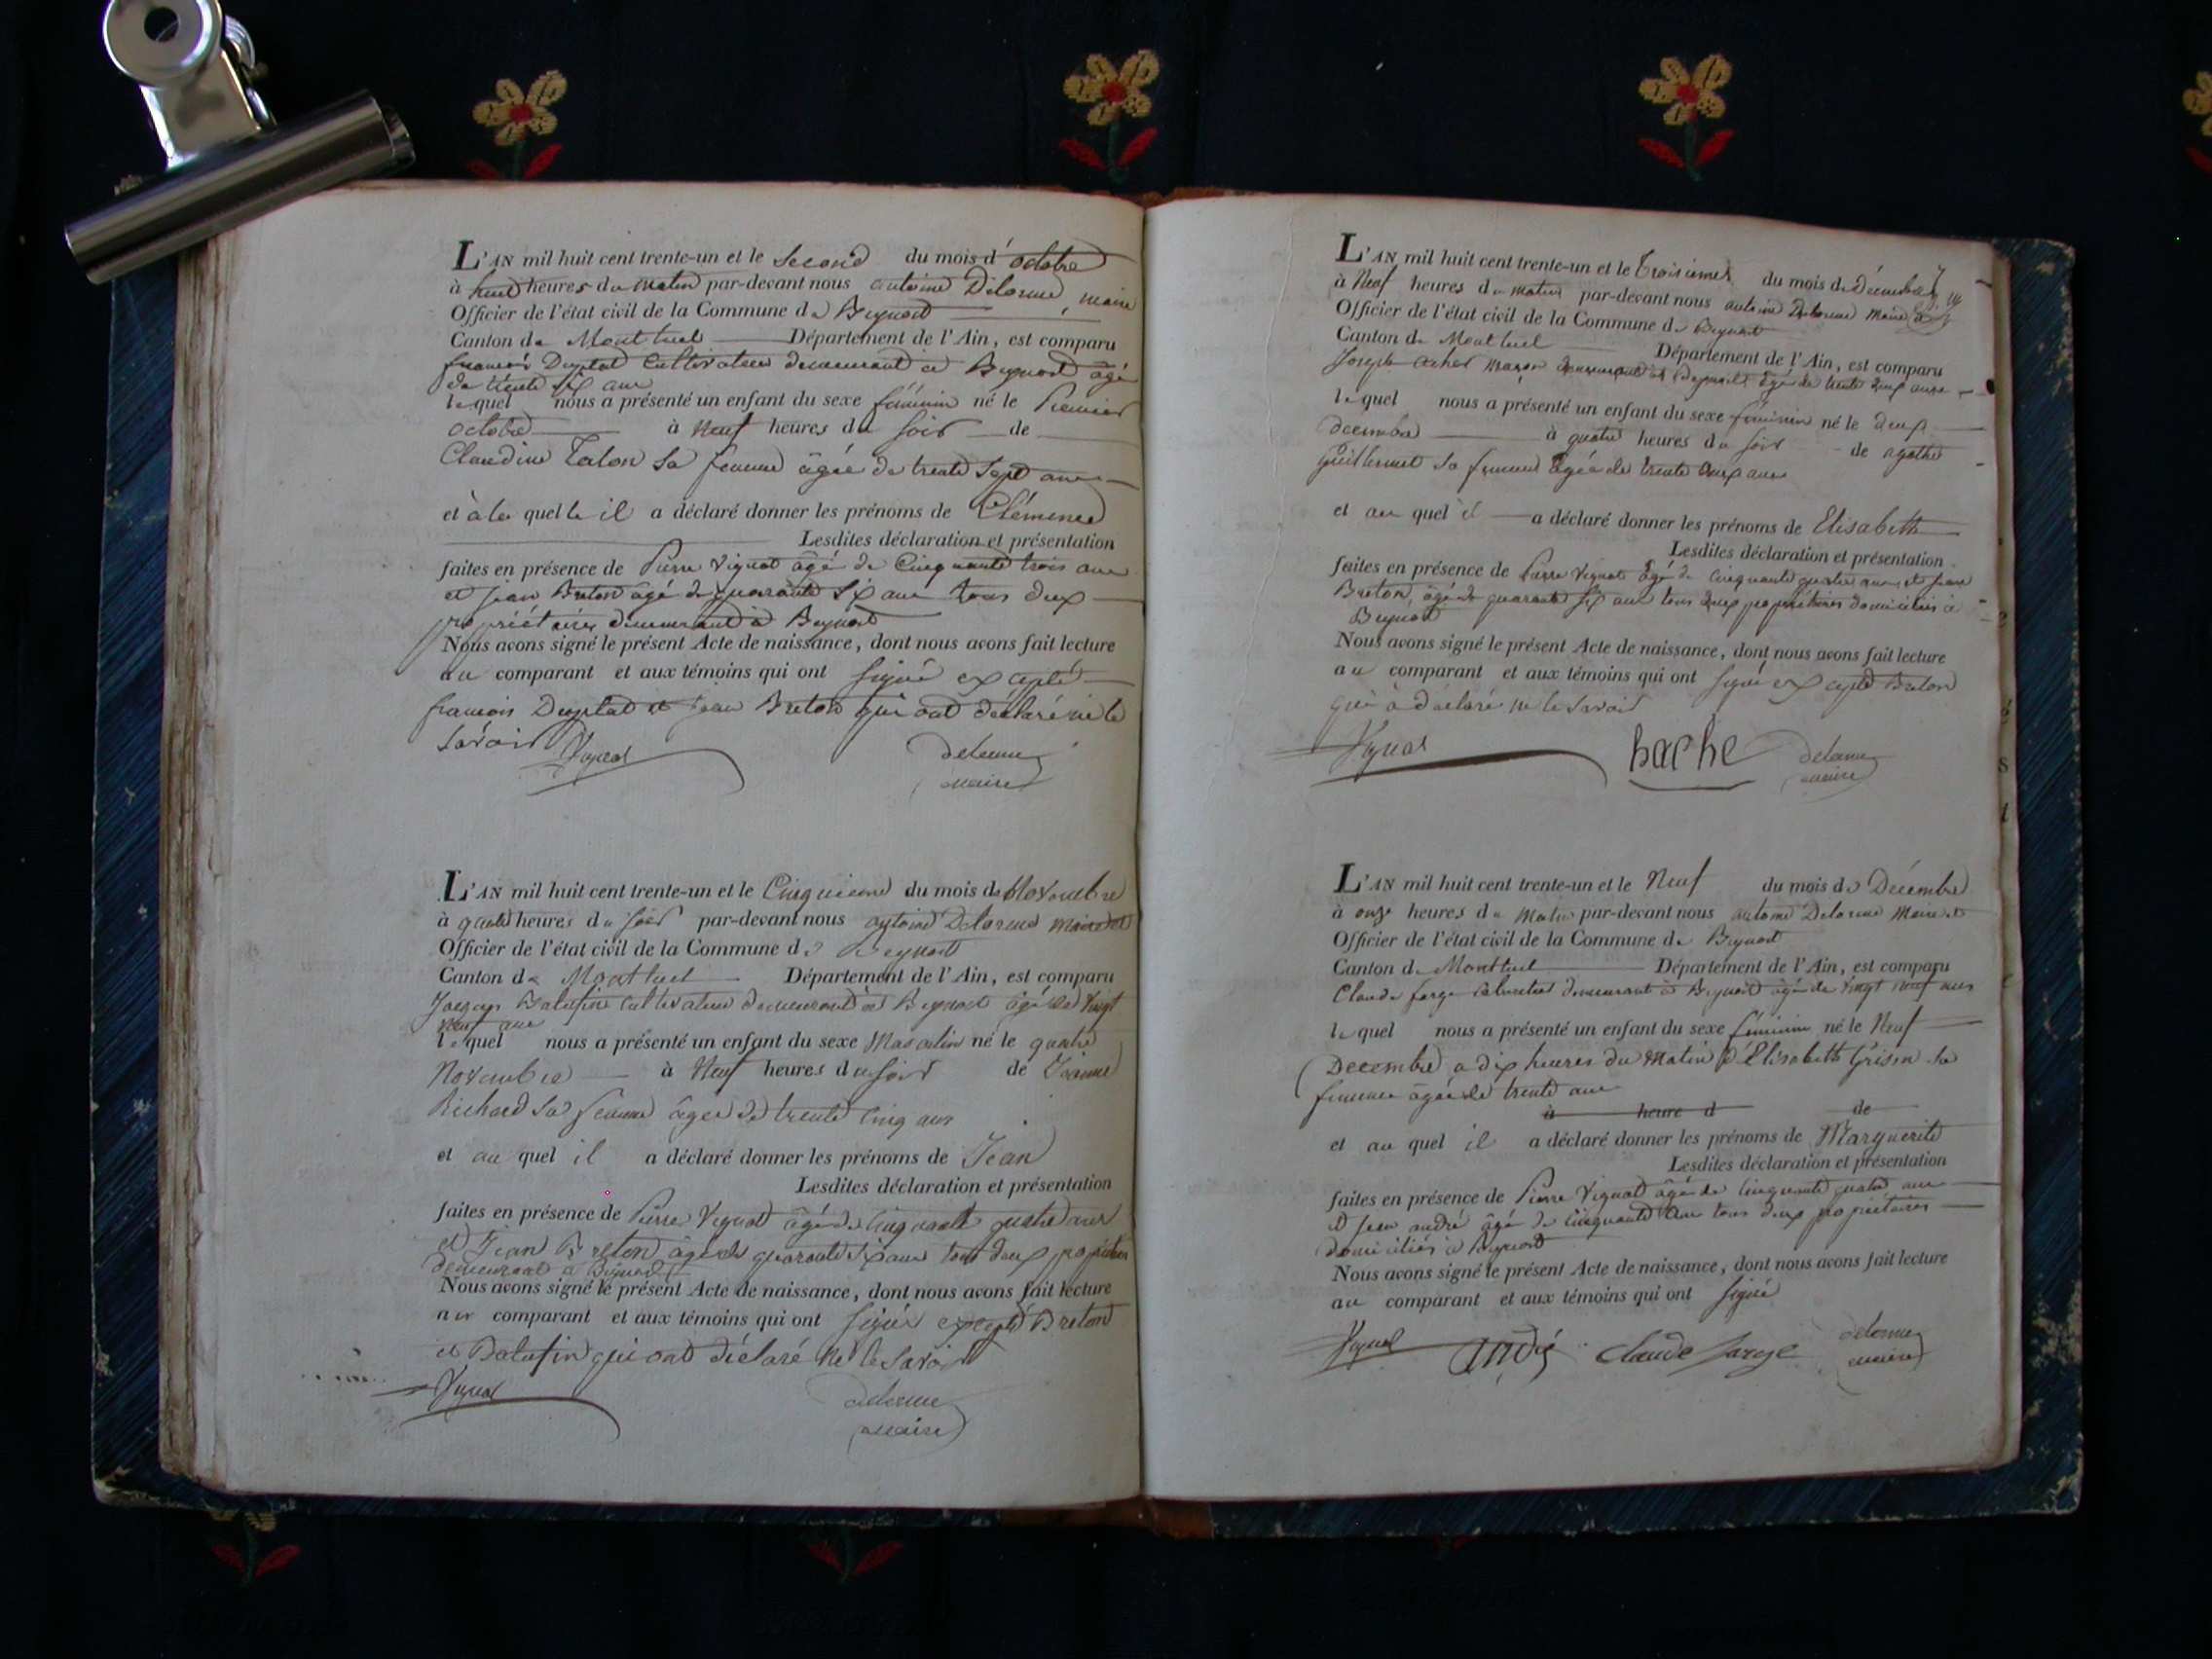 L'AN mil huit cent trente-un et le Second du mois d'octobre
à huit heures du matin par-devant nous antoine Delorme maire
Officier de l'état civil de la Commune de Beynost
Canton de Montluel Département de l'Ain, est comparu
francois cultivateur demeurant à Beynost âgé
de trente six ans
lequel nous a présenté un enfant du sexe féminin né le Premier
octobre à Neuf heures du soir de
Claudine Talon sa femme âgée de trente sept ans
et à la quelle il a déclaré donner les prénoms de Clémence
Lesdites déclaration et présentation
faites en présence de Pierre Vignat âgé de Cinquante trois ans
et jean Breton âgé de quarante six ans tous deux
propriétaires demeurant à Beynost
Nous avons signé le présent Acte de naissance, dont nous avons fait lecture
au comparant et aux témoins qui ont signé excepté
francois et jean Breton qui ont déclaré ne le
savoir
Vignat delorme
maire
L'AN mil huit cent trente-un et le Cinquieme du mois de Novembre
à quatre heures du soir par-devant nous antoine Delorme maire et
Officier de l'état civil de la Commune de Beynost
Canton de Montluel Département de l'Ain, est comparu
Jacques Balufin cultivateur demeurant à Beynost âgé de vingt
neuf ans
lequel nous a présenté un enfant du sexe Masculin né le quatre
Novembre à Neuf heures du soir de
Richard sa femme âgée de trente cinq ans
et au quel il a déclaré donner les prénoms de Jean
Lesdites déclaration et présentation
faites en présence de Pierre Vignat âgé de cinquante quatre ans
et Jean Breton âgé de quarante six ans tous deux propriétaires
demeurant à Beynost
Nous avons signé le présent Acte de naissance, dont nous avons fait lecture
au comparant et aux témoins qui ont signé excepté Breton
et Balufin qui ont déclaré ne le savoir
Vignat delorme
maire
L'AN mil huit cent trente-un et le Troisieme du mois de Décembre
à Neuf heures du matin par-devant nous antoine Delorme Maire et
Officier de l'état civil de la Commune de Beynost
Canton de Montluel Département de l'Ain, est comparu
Joseph achet maçon demeurant à Beynost âgé de trente deux ans
lequel nous a présenté un enfant du sexe féminin né le deux
décembre à quatre heures du soir de agathe
Guillermet sa femme âgée de trente deux ans
et au quel il a déclaré donner les prénoms de Elisabeth
Lesdites déclaration et présentation
faites en présence de Pierre Vignat âgé de cinquante quatre ans et jean
Breton âgé de quarante six ans tous deux propriétaires domiciliés à
Beynost
Nous avons signé le présent Acte de naissance, dont nous avons fait lecture
au comparant et aux témoins qui ont signé excepté Breton
qui à déclaré ne le savoir
Vignat hache delorme
maire
L'AN mil huit cent trente-un et le Neuf du mois de Décembre
à onze heures du Matin par-devant nous antoine Delorme Maire et
Officier de l'état civil de la Commune de Beynost
Canton de Montluel Département de l'Ain, est comparu
Claude farge demeurant à Beynost âgé de vingt neuf ans
lequel nous a présenté un enfant du sexe féminin né le Neuf
Decembre a dix heures du Matin d'Elisabeth Grison sa
femme âgée de trente ans
à heure d de
et au quel il a déclaré donner les prénoms de Marguerite
Lesdites déclaration et présentation
faites en présence de Pierre Vignat âgé de cinquante quatre ans
et jean andré âgé de cinquante ans tous deux propriétaires
domiciliés à Beynost
Nous avons signé le présent Acte de naissance, dont nous avons fait lecture
au comparant et aux témoins qui ont signé
Vignat andré claude farge delorme
maire